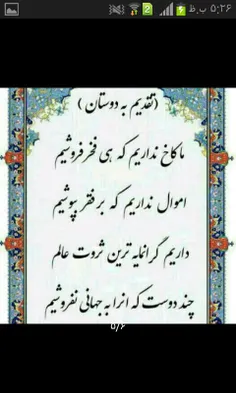 ۵:۲۶ ب.ظ
(تقدیم به دوستان)
ما کاخ نداریم که هی فخر فروشیم
اموال نداریم که بر فقر بپوشیم
داریم گرانمایه ترین ثروت عالم
چند دوست که آنرا به جهانی نفروشیم
۵/۶